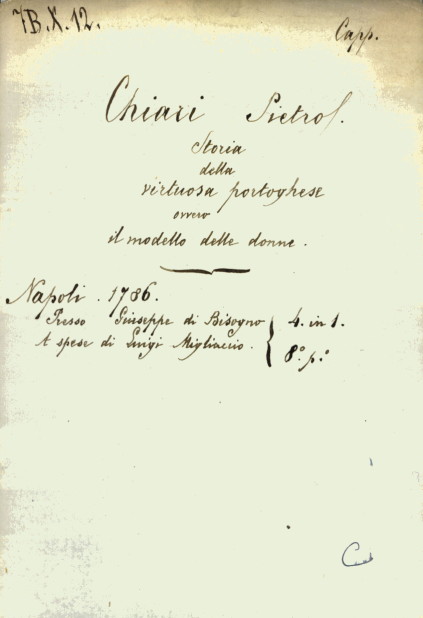 7B.X.12.
Capp.
Chiari Pietro.
Storia
della
virtuosa portoghese
ovvero
il modello delle donne.
Napoli. 1786.
Presso Giuseppe di Bisogno
A spese di Luigi Migliaccio.
4. in 1.
8.º p.º